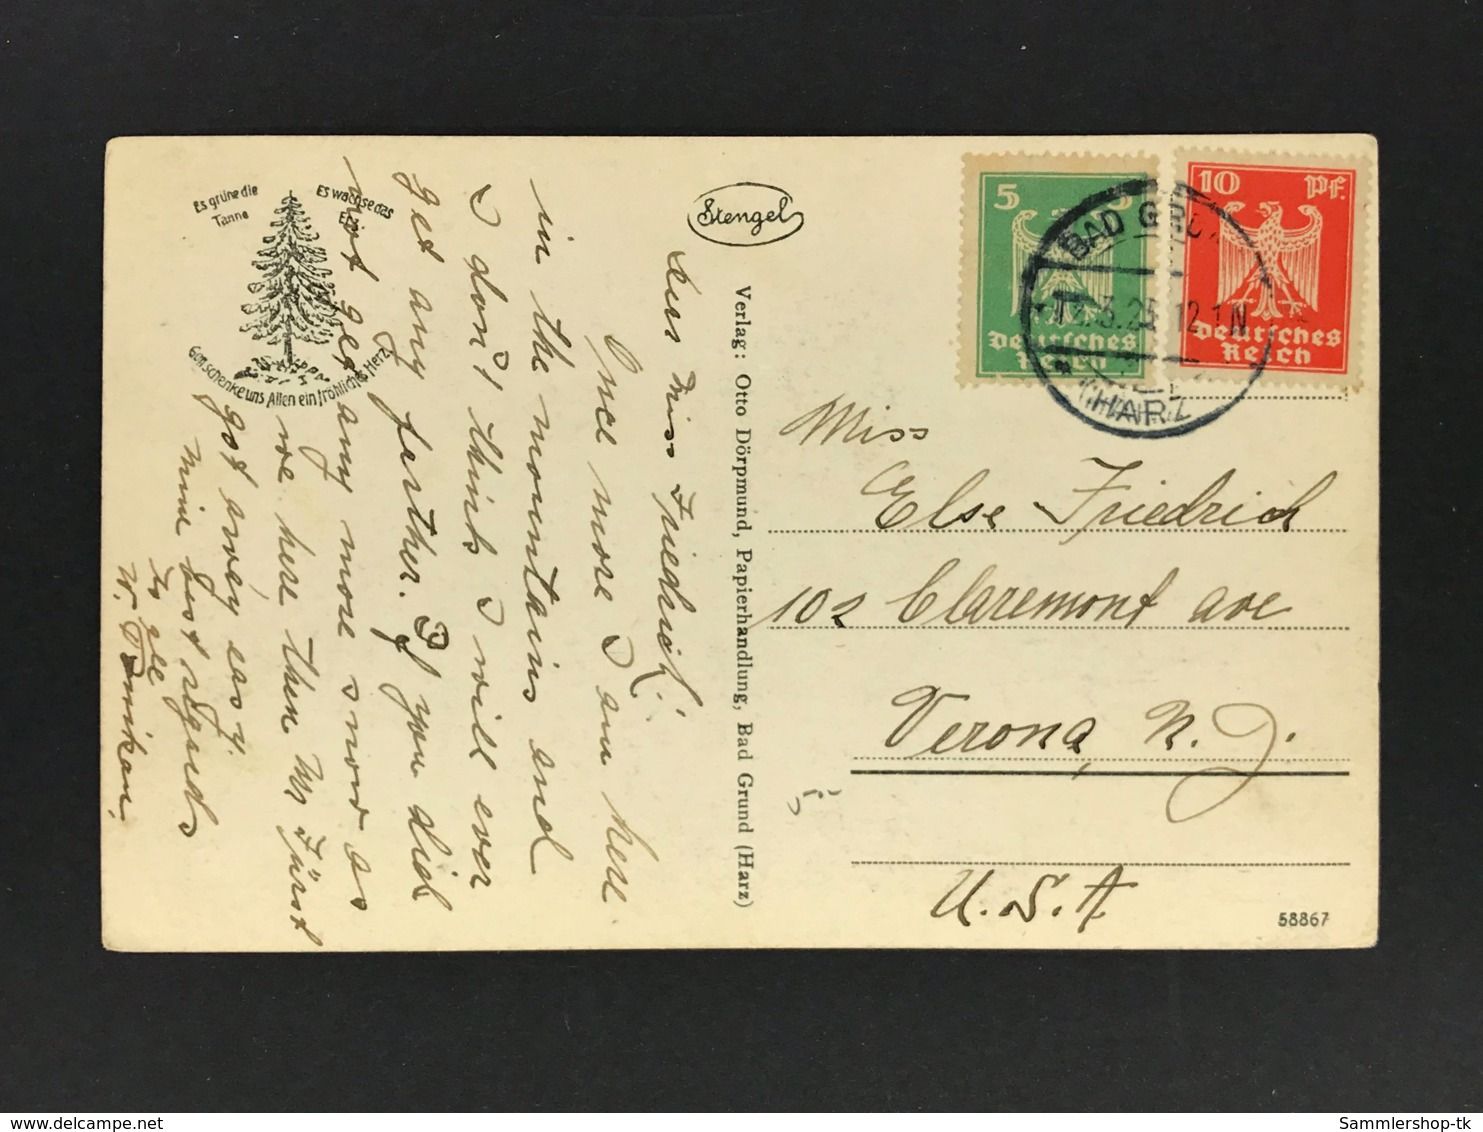 Es grüne die
Tanne
Es wachse das
Erz
Gott schenke uns Allen ein fröhliches Herz.
Stengel
Dear Miss Friedrich!
Once more I am here
in the mountains and
I don't think I will ever
get any farther. If you did
not get any more snow as
we here then
got awey easy.
Mine best regards
to all
W.
Verlag: Otto Dörpmund, Papierhandlung, Bad Grund (Harz)
5 5
Deutsches
Reich
10 Pf.
Deutsches
Reich
BAD GRU
3.25 12-1N
HARZ
Miss
Else Friedrich
102 Claremont ave
Verona, N. J.
U.S.A
58867
Sammlershop-tk